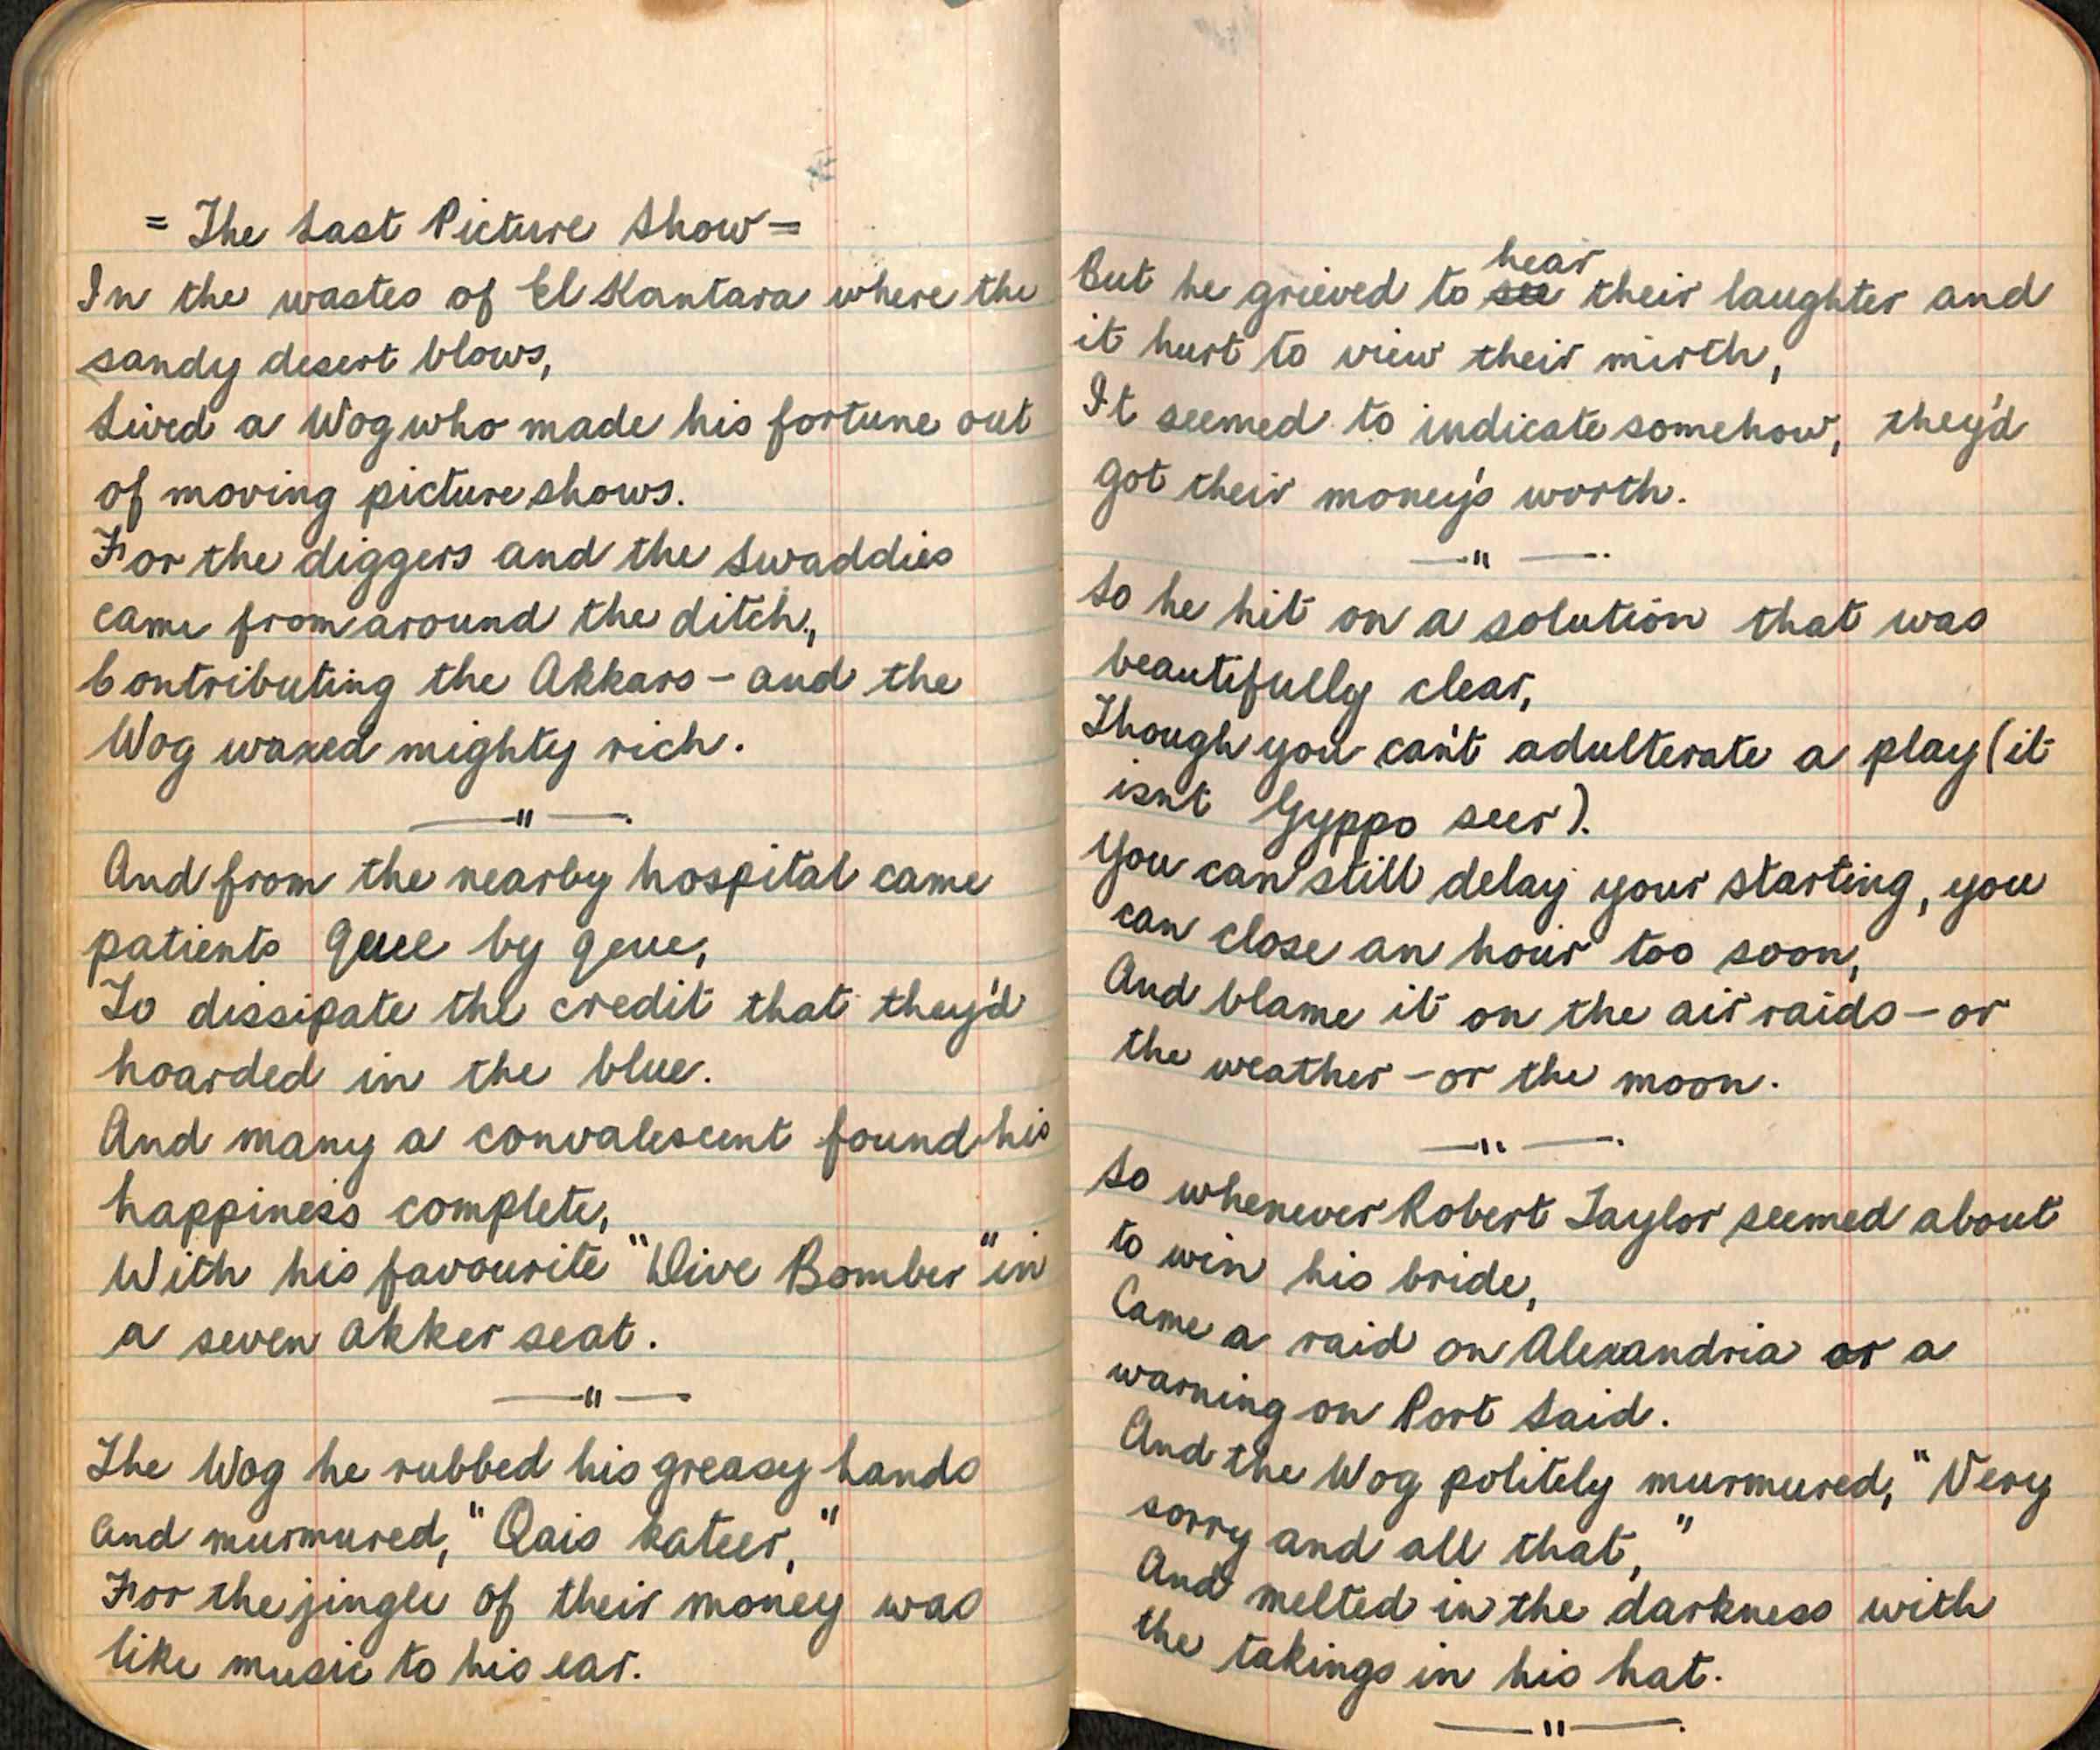 = The Last Picture Show =
In the wastes of El Kantara where the
sandy desert blows,
Lived a Wog who made his fortune out
of moving picture shows.
For the diggers and the Swaddies
came from around the ditch,
Contributing the Akkars - and the
Wog waxed mighty rich.
—"—.
And from the nearby hospital came
patients queue by queue,
To dissipate the credit that they'd
hoarded in the blue.
And many a convalescent found his
happiness complete,
With his favourite "Dive Bomber" in
a seven akker seat.
—"—
The Wog he rubbed his greasy hands
and murmured, "Qais kateer,"
For the jingle of their money was
like music to his ear.
hear
But he grieved to see their laughter and
it hurt to view their mirth,
It seemed to indicate somehow, they'd
got their money's worth.
—"—.
So he hit on a solution that was
beautifully clear,
Though you can't adulterate a play (it
isn't Gyppo seer).
You can still delay your starting, you
can close an hour too soon,
And blame it on the air raids - or
the weather - or the moon.
—"—.
So whenever Robert Taylor seemed about
to win his bride,
Came a raid on Alexandria or a
warning on Port Said.
And the Wog politely murmured, "Very
sorry and all that,"
And melted in the darkness with
the takings in his hat.
—"—.